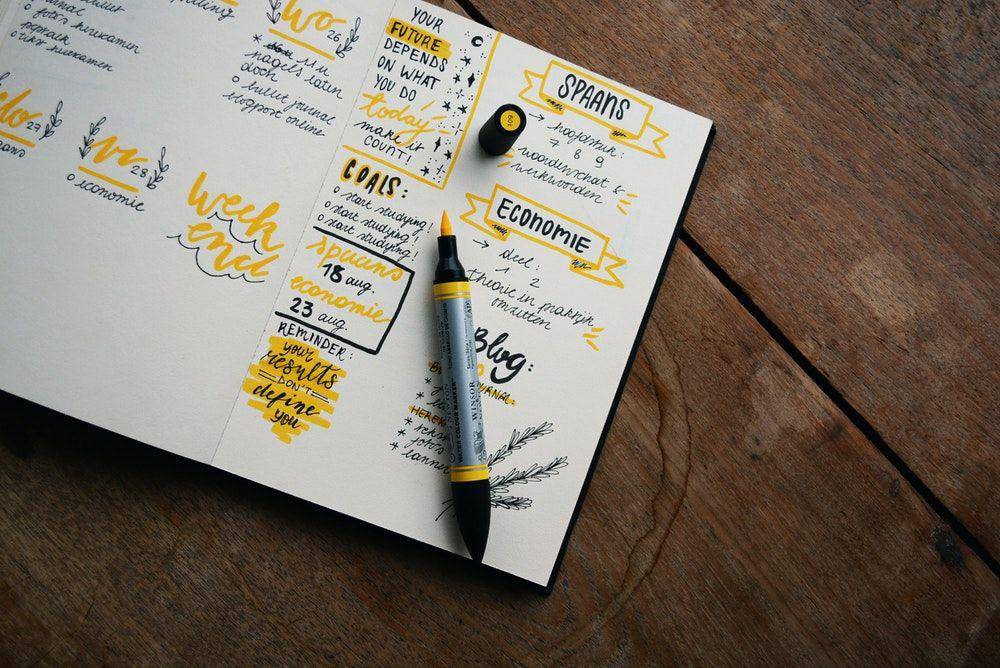 o foto's herexamen
o herexamen
wo 26
11u
nagels laten
doen
o bullet journal
blogpost online
do 27
vr 28
o economie
Week
end
YOUR
FUTURE
DEPENDS
ON WHAT
YOU DO
today
make it
COUNT!
GOALS:
o start studying!
o start studying!
o start studying!
spaans
18 aug.
economie
23 aug.
REMINDER:
your
results
DON'T
define
you
109
SPAANS
→ hoofdstuk:
7 8 9
woordenschat &
werkwoorden
ECONOMIE
→ deel:
1 2
theorie in praktijk
omzetten
Blog:
JOURNAL:
HEREX
* foto's
WATER COLOUR MARKER
WINSOR